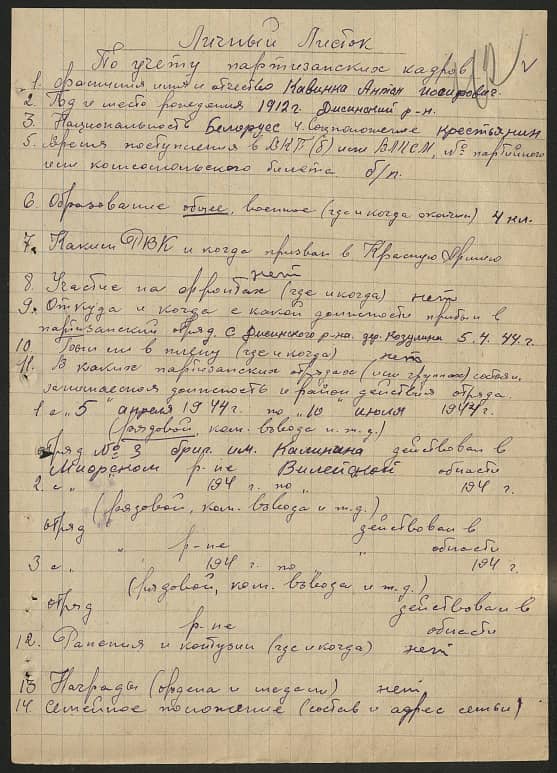 Личный Листок
По учету партизанских кадров
1. Фамилия имя и отчество Кавинка Антон
2. Год и место рождения 1912 г. Дисинский р-н.
3. Национальность Белорус 4. Соцположение Крестьянин
5. Время поступления в ВКП(б) или ВЛКСМ, № партийного
или комсомольского билета б/п.
6. Образование общее, военное (где и когда окончил) 4 кл.
7. Каким РВК и когда призван в Красную Армию
нет
8. Участие на фронтах (где и когда) нет
9. Откуда и когда с какой должности прибыл в
партизанский отряд. с Дисинского р-на. дер. Козулина 5.4.44 г.
10. Был ли в плену (где и когда) нет
11. В каких партизанских отрядах (или группах) состоял,
занимаемая должность и район действия отряда.
1 с „5" апреля 1944 г. по „10" июля 1944 г.
(рядовой, ком. взвода и т.д.)
отряд № 3 бриг. им. Калинина действовал в
Миорском р-не Вилейской области
2. с „ 194 г. по „ 194 г.
(рядовой, ком. взвода и т.д.)
отряд действовал в
„ р-не „ области
3 с „ 194 г. по 194 г.
(рядовой, ком. взвода и т.д.)
отряд действовал в
р-не области
12. Ранения и контузии (где и когда) нет
13 Награды (ордена и медали) нет
14. Семейное положение (состав и адрес семьи)